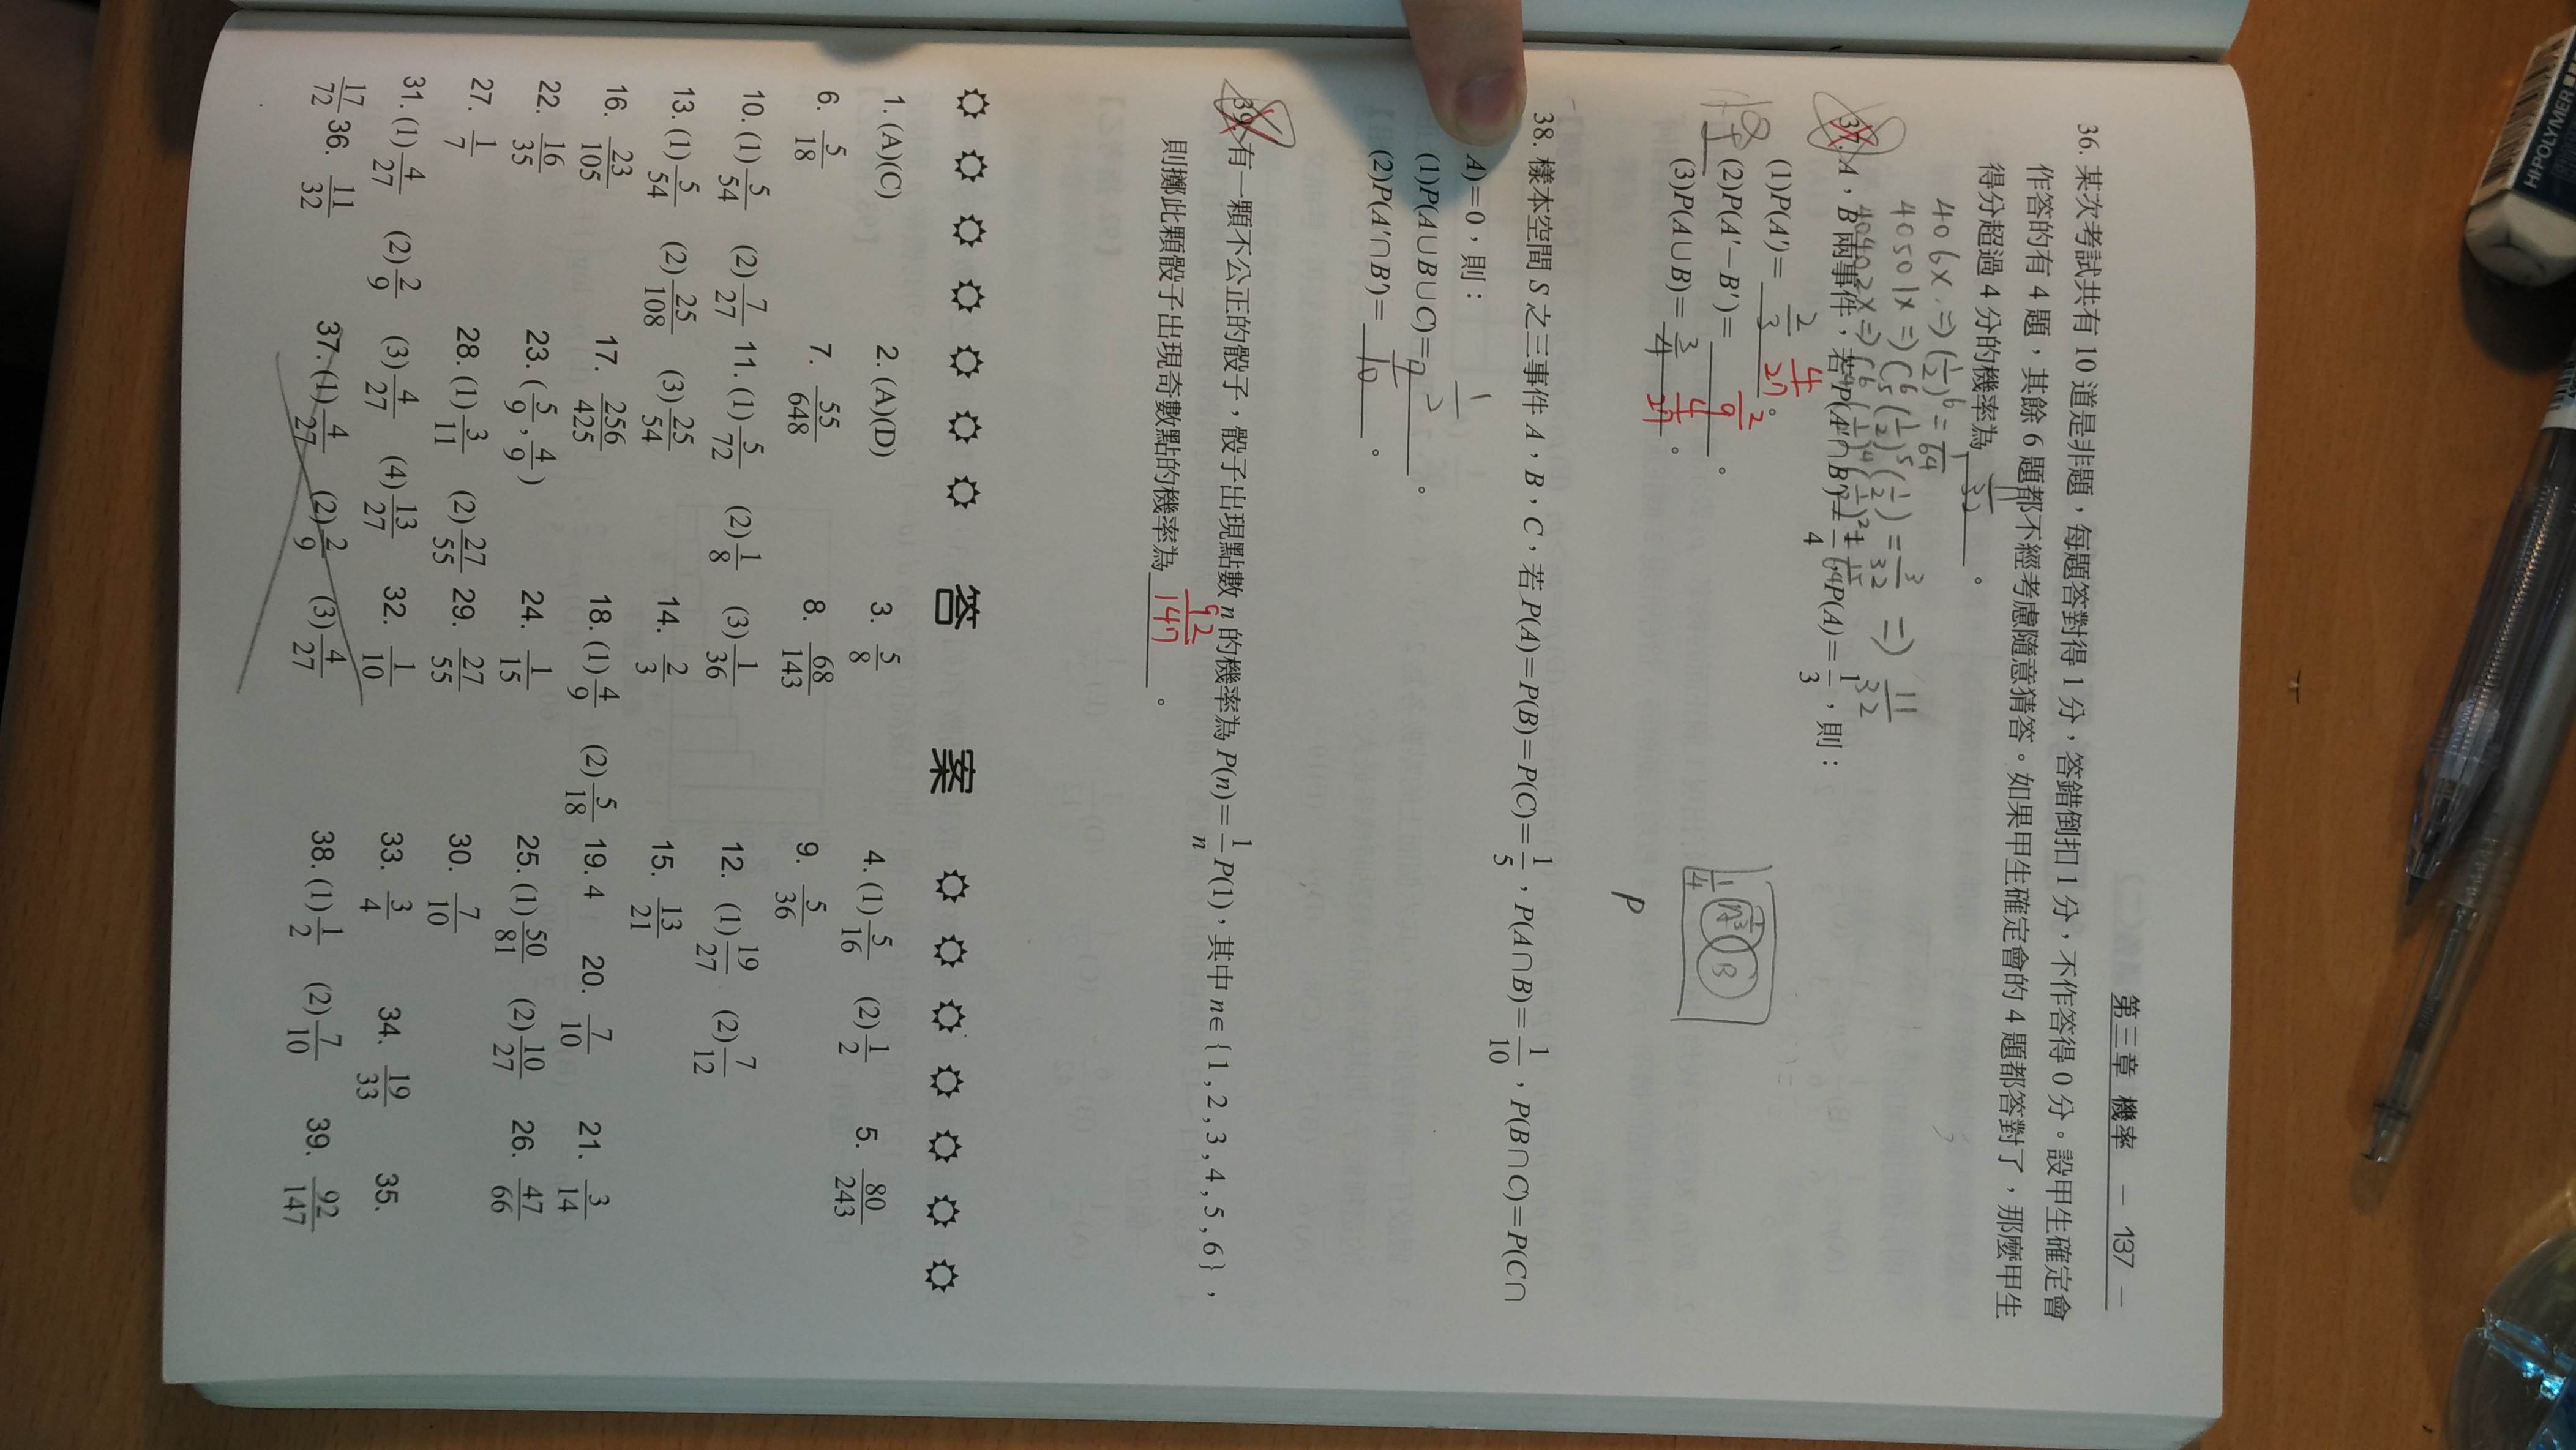 第三章 機率 － 137 －
36. 某次考試共有 10 道是非題，每題答對得 1 分，答錯倒扣 1 分，不作答得 0 分。設甲生確定會
作答的有 4 題，其餘 6 題都不經考慮隨意猜答。如果甲生確定會的 4 題都答對了，那麼甲生
得分超過 4 分的機率為 11/32 。
4 0 6X ⇒ (1/2)^6 = 1/64
4 0 5 0 1X ⇒ C^6_5 (1/2)^5 (1/2) = 3/32 ⇒ 11/32
37. A，B 兩事件，若 P(A'∩B')=1/4，P(A)=1/3，則：
(1)P(A')= 2/3 4/27 。
(2)P(A'－B')= 2/9 。
(3)P(A∪B)= 3/4 4/27 。
1/4 A 1/3 B
P
38. 樣本空間 S 之三事件 A，B，C，若 P(A)=P(B)=P(C)=1/5，P(A∩B)=1/10，P(B∩C)=P(C∩
A)=0，則：
(1)P(A∪B∪C)= 1/2 。
(2)P(A'∩B')= 7/10 。
39. 有一顆不公正的骰子，骰子出現點數 n 的機率為 P(n)=1/n P(1)，其中 n∈{1 , 2 , 3 , 4 , 5 , 6}，
則擲此顆骰子出現奇數點的機率為 92/147 。
答 案
1. (A)(C) 2. (A)(D) 3. 5/8 4. (1)5/16 (2)1/2 5. 80/243
6. 5/18 7. 55/648 8. 68/143 9. 5/36
10. (1)5/54 (2)7/27 11. (1)5/72 (2)1/8 (3)1/36 12. (1)19/27 (2)7/12
13. (1)5/54 (2)25/108 (3)25/54 14. 2/3 15. 13/21
16. 23/105 17. 256/425 18. (1)4/9 (2)5/18 19. 4 20. 7/10 21. 3/14
22. 16/35 23. (5/9 , 4/9) 24. 1/15 25. (1)50/81 (2)10/27 26. 47/66
27. 1/7 28. (1)3/11 (2)27/55 29. 27/55 30. 7/10
31. (1)4/27 (2)2/9 (3)4/27 (4)13/27 32. 1/10 33. 3/4 34. 19/33 35.
17/72 36. 11/32 37. (1)4/27 (2)2/9 (3)4/27 38. (1)1/2 (2)7/10 39. 92/147
HI-POLYMER